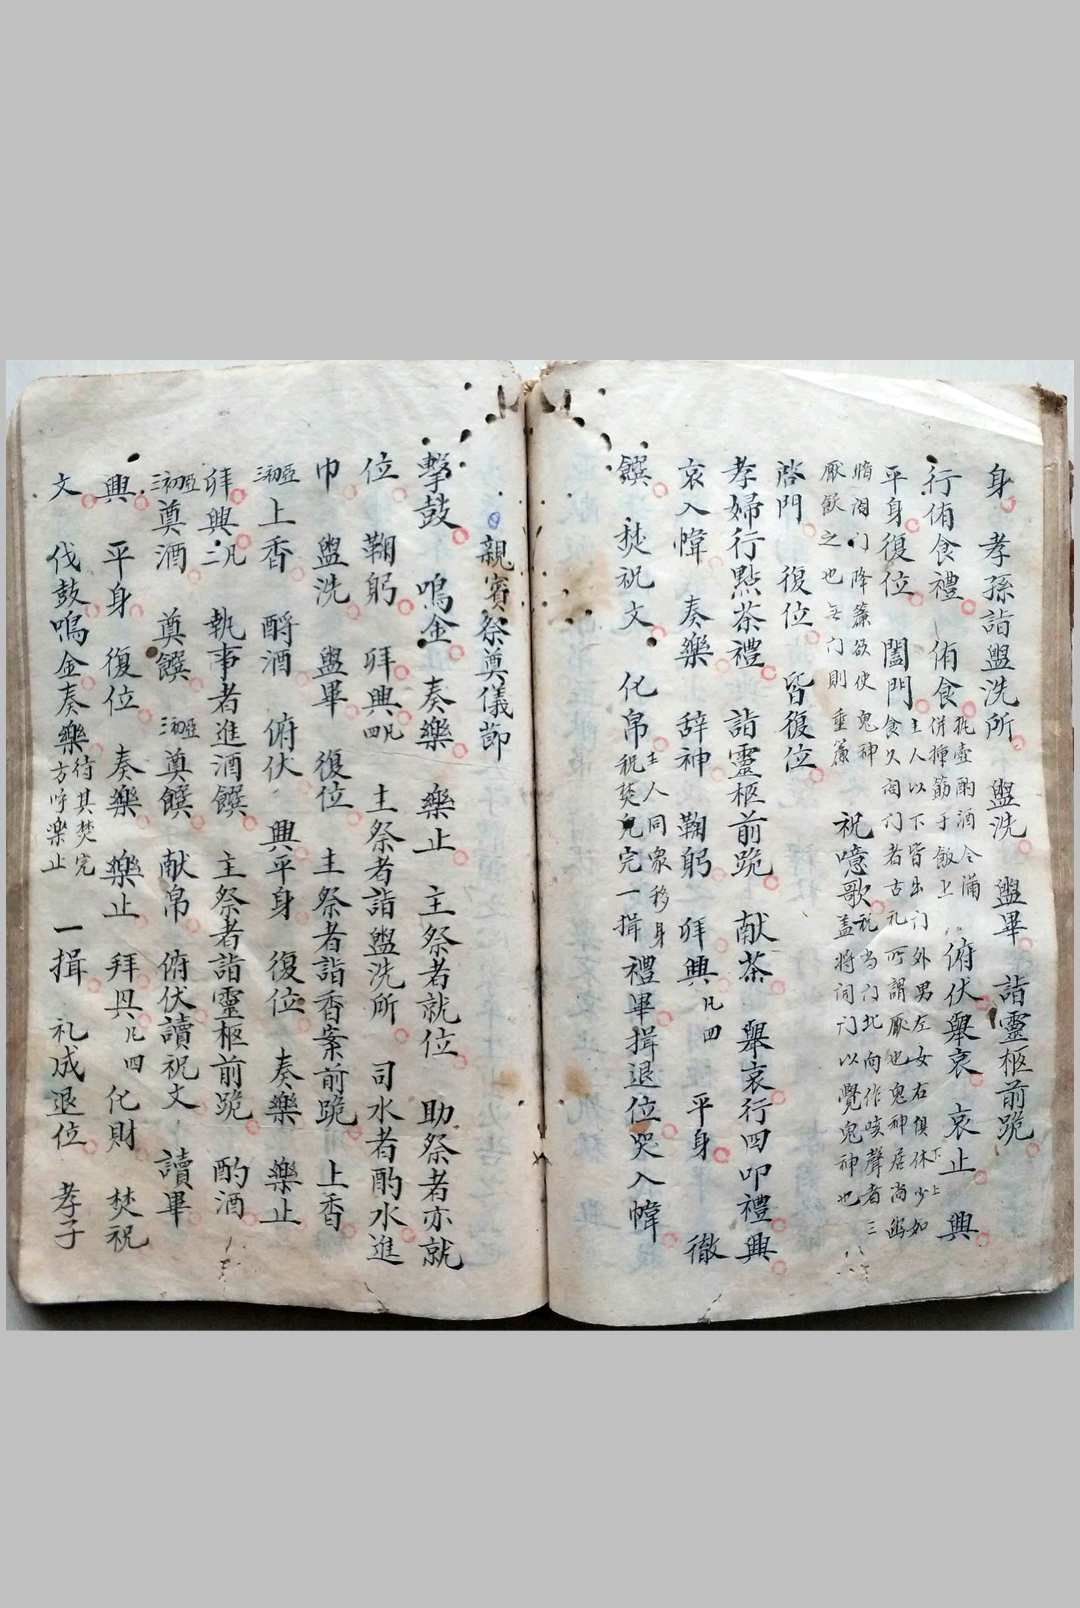 身 孝孫詣盥洗所 盥洗 盥畢 詣靈柩前跪
行侑食禮 侑食 執壺酌酒令滿 併揷筯于飯上 俯伏舉哀 哀止 興
平身復位 闔門 主人以下皆出门外男左女右俱休下上少如食久闾门者古礼所謂厭也鬼神居尚幽
暗闾门降簾欲使鬼神厭飫之也无门則垂簾 祝噫歌 祝当门北向作咳聲者三盖将闾门以覺鬼神也
啓門 復位 皆復位
孝婦行點茶禮 詣靈柩前跪 献茶 舉哀行四叩禮興
哀入幃 奏樂 辞神 鞠躬 拜興凡四 平身 徹
饌 焚祝文 化帛 主人同衆移身祝焚完一揖 禮畢揖退位哭入幃
親賓祭奠儀節
擊鼓 鳴金 奏樂 樂止 主祭者就位 助祭者亦就
位 鞠躬 拜興凡四 主祭者詣盥洗所 司水者酌水進
巾 盥洗 盥畢 復位 主祭者詣香案前跪 上香
初亞三上香 酹酒 俯伏 興平身 復位 奏樂 樂止
拜興凡二 執事者進酒饌 主祭者詣靈柩前跪 酌酒
初亞三奠酒 奠饌 初亞三奠饌 献帛 俯伏讀祝文 讀畢
興 平身 復位 奏樂 樂止 拜興凡四 化財 焚祝
文 伐鼓鳴金奏樂 待其焚完方呼樂止 一揖 礼成退位 孝子